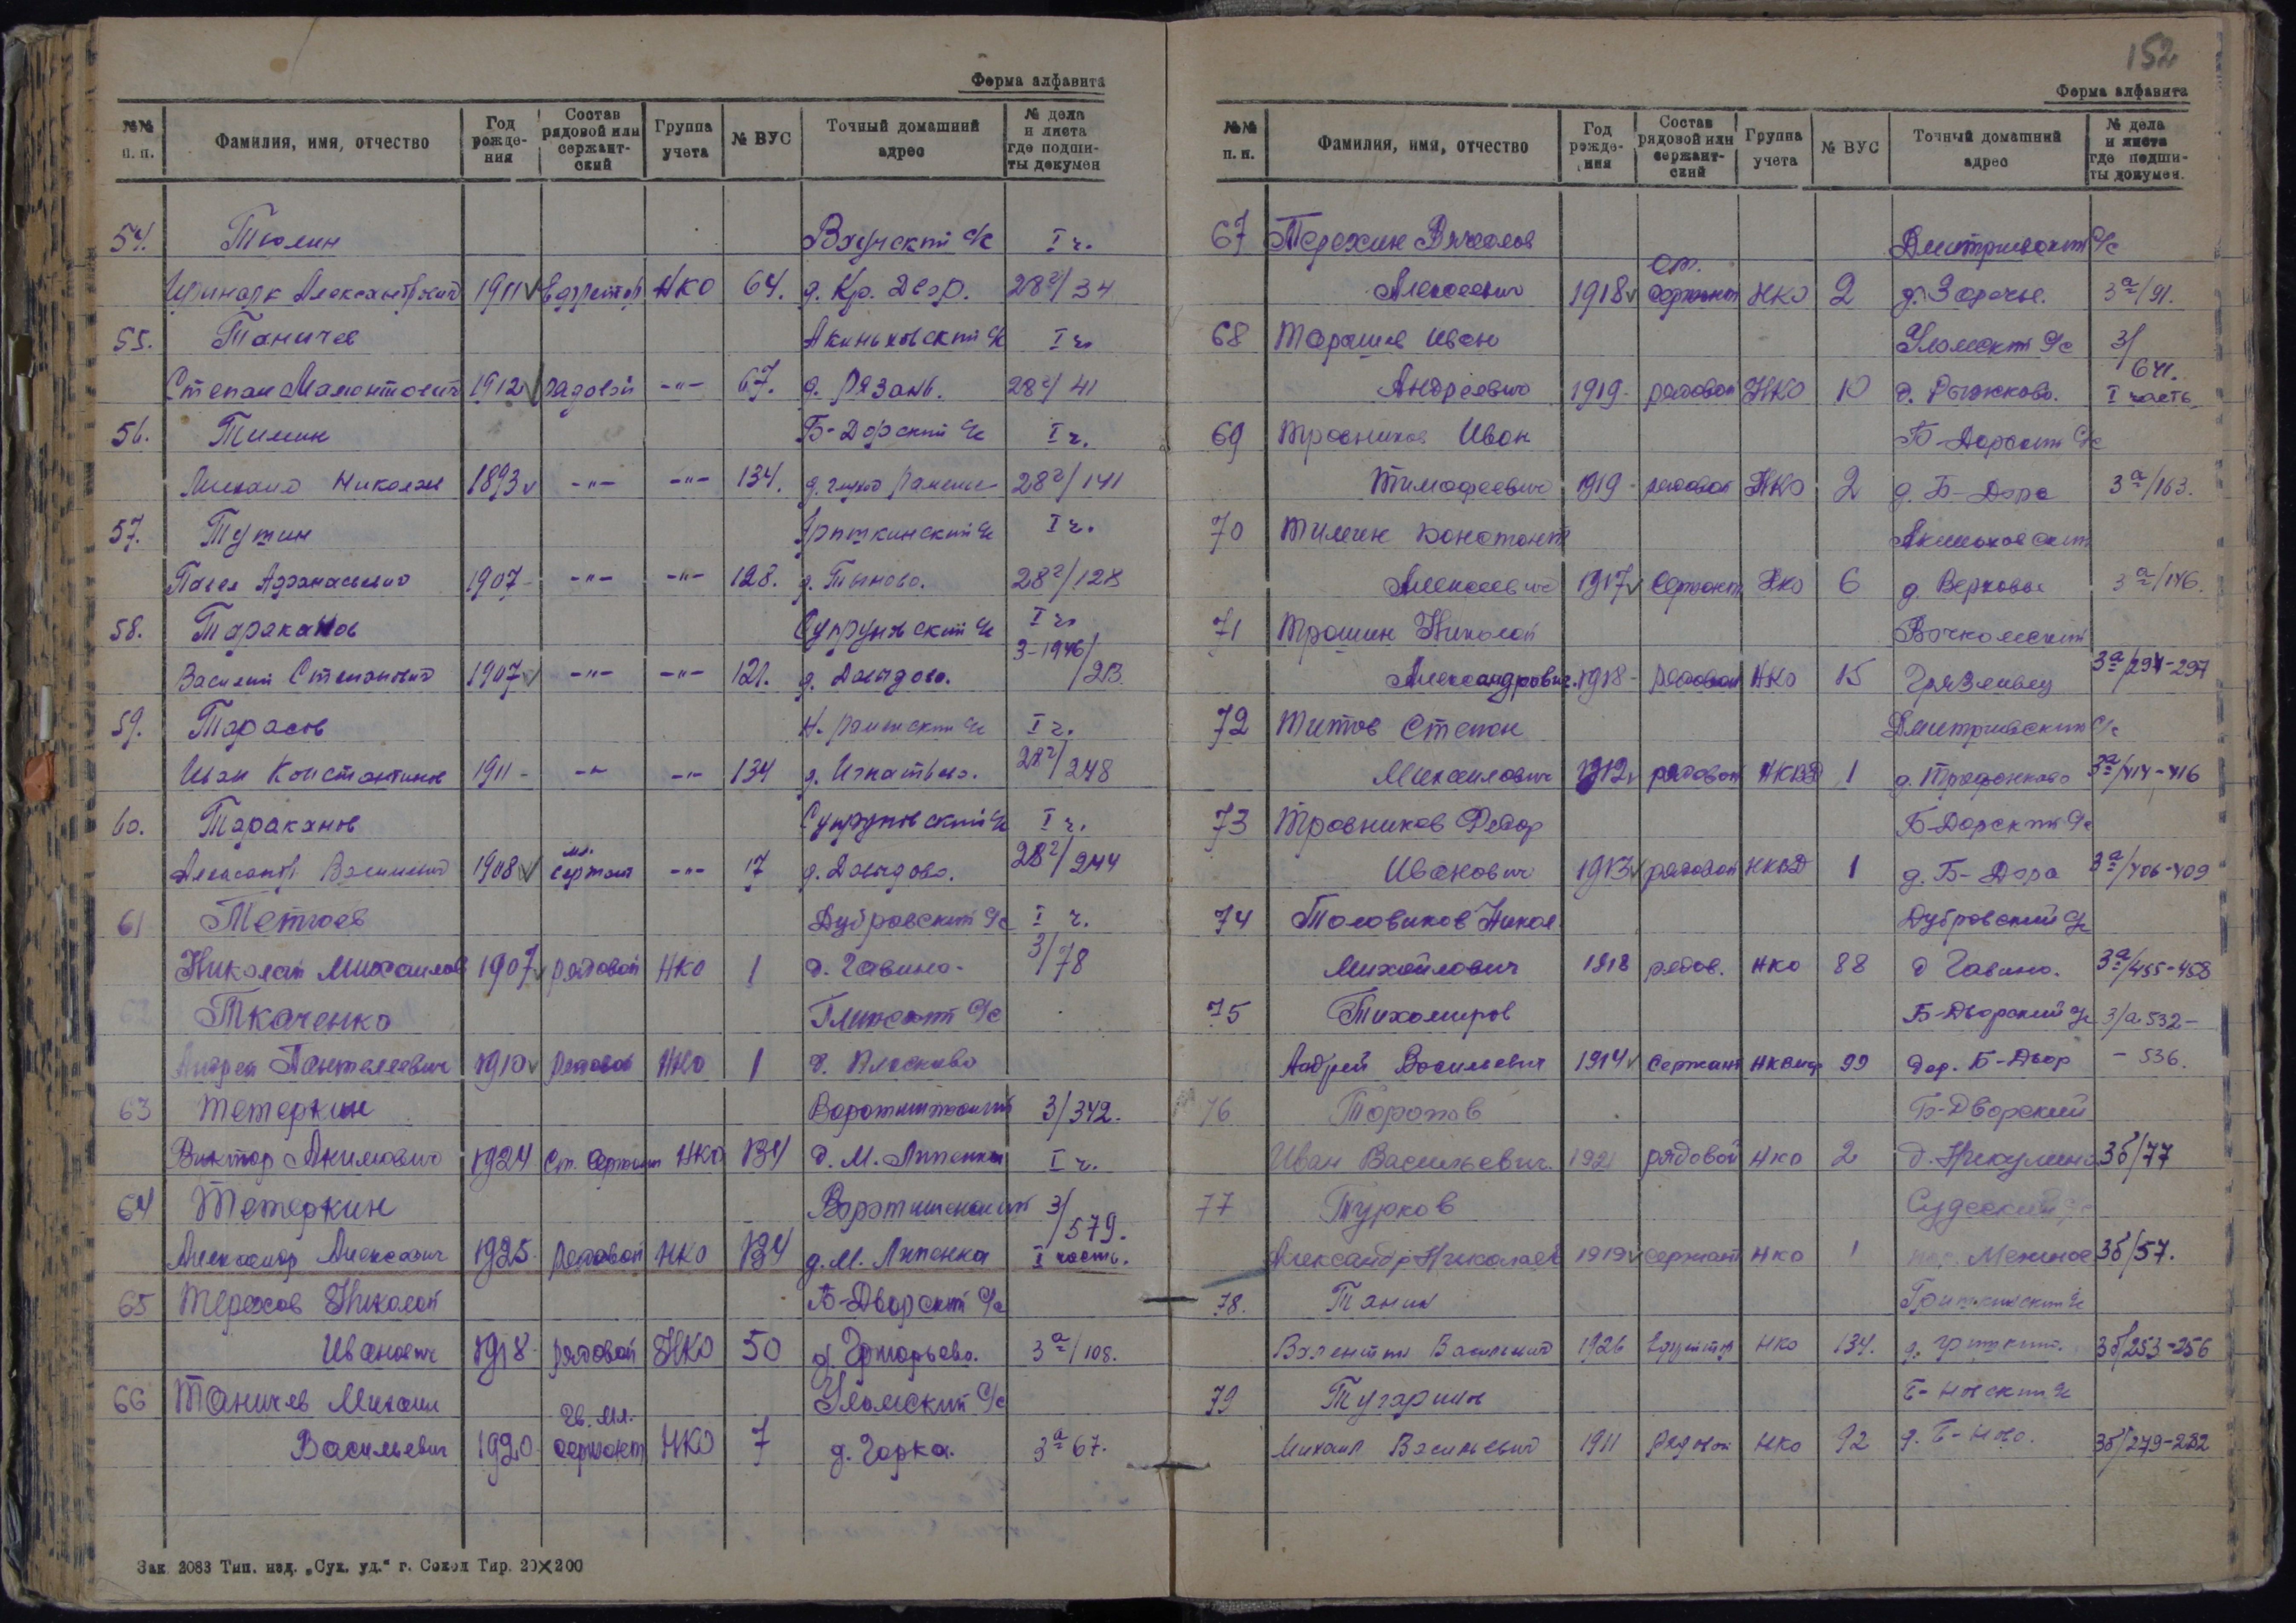 Форма алфавита
№№ п. п. Фамилия, имя, отчество Год рожде-ния Состав рядовой или сержант-ский Группа учета № ВУС Точный домашний адрес № дела и листа где подши-ты докумен
54. Тюлин с/с I ч.
Александрович 1911 ефрейтор НКО 64. 28²/34
55. Таничев с/с I ч.
Степан Мамонтович 1912 рядовой -"- 67. д. Рязань. 28²/41
56. Тимин Б-Дорский с/с I ч.
Михаил Николаев 1893 -"- -"- 134. д. 28²/141
57. Тутин с/с I ч.
Павел Афанасьевич 1907- -"- -"- 128. д. Тыново. 28²/128
58. Тараканов Супруновский с/с I ч.
Василий Степанович 1907 -"- -"- 121. д. Давыдово. 3-1946/213
59. Тарасов с/с I ч.
Иван Константинов 1911- -"- -"- 134 д. Игнатьево. 28²/248
60. Тараканов Супруновский с/с I ч.
Василиевич 1908 мл. сержант -"- 17 д. Давыдово. 28²/244
61 Дубровский с/с I ч.
Николай Михайлов 1907 рядовой НКО 1 д. Гавино. 3/78
62 Ткаченко с/с
Андрей Пантелеевич 1910 рядовой НКО 1 д. Плосково
63 Тетеркин 3/342.
Виктор Акимович 1924 Ст. Сержант НКО 134 д. М. Липенка I ч.
64 Тетеркин 3/579.
Александр Алексеевич 1925 рядовой НКО 134 д. М. Липенка I часть.
65 Терехов Николай Б-Дворский с/с
Иванович 1918- рядовой НКО 50 д. Григорьево. 3ª/108.
66 Таничев Михаил Уломский с/с
Васильевич 1920 Гв. мл. сержант НКО 7 д. Горка. 3ª 67.
Зак. 2083 Тип. изд. „Сух. уд.“ г. Сокол Тир. 20×200
152
Форма алфавита
№№ п. п. Фамилия, имя, отчество Год рожде-ния Состав рядовой или сержант-ский Группа учета № ВУС Точный домашний адрес № дела и листа где подши-ты докумен.
67 Терехин Вячеслав Дмитриевский с/с
Алексеевич 1918 ст. сержант НКО 2 д. Заречье. 3ª/91.
68 Тарашев Иван Уломский с/с 3/641.
Андреевич 1919- рядовой НКО 10 д. Рыжково. I часть
69 Травников Иван Б-Дорский с/с
Тимофеевич 1919- рядовой НКО 2 д. Б-Дора 3ª/163.
70 Тимин Констант
Алексеевич 1917 Сержант НКО 6 д. Верховье 3ª/146.
71 Трошин Николай
Александрович 1918- рядовой НКО 15 Грязевец 3ª/294-297
72 Титов Степан Дмитриевский с/с
Михайлович 1912 рядовой НКВД 1 д. Трифонково 3ª/414-416
73 Травников Федор Б-Дорский с/с
Иванович 1913 рядовой НКВД 1 д. Б-Дора 3ª/406-409
74 Толовиков Никол Дубровский с/с
Михайлович 1918 рядов. НКО 88 д Гавино. 3ª/455-458
75 Тихомиров Б-Дворский с/с 3/а 532-
Андрей Васильевич 1914 сержант 99 дер. Б-Двор - 536.
76 Торопов Б-Дворский
Иван Васильевич. 1921 рядовой НКО 2 д. Никулино 3б/77
77 Турков
Александр Николаев 1919 сержант НКО 1 3б/57.
78. Танин с/с
Валентин Васильевич 1926 ефрейтор НКО 134. д. 3б/253-256
79 Тугаринов с/с
Михаил Васильевич 1911 рядовой НКО 92 д. 3б/279-282